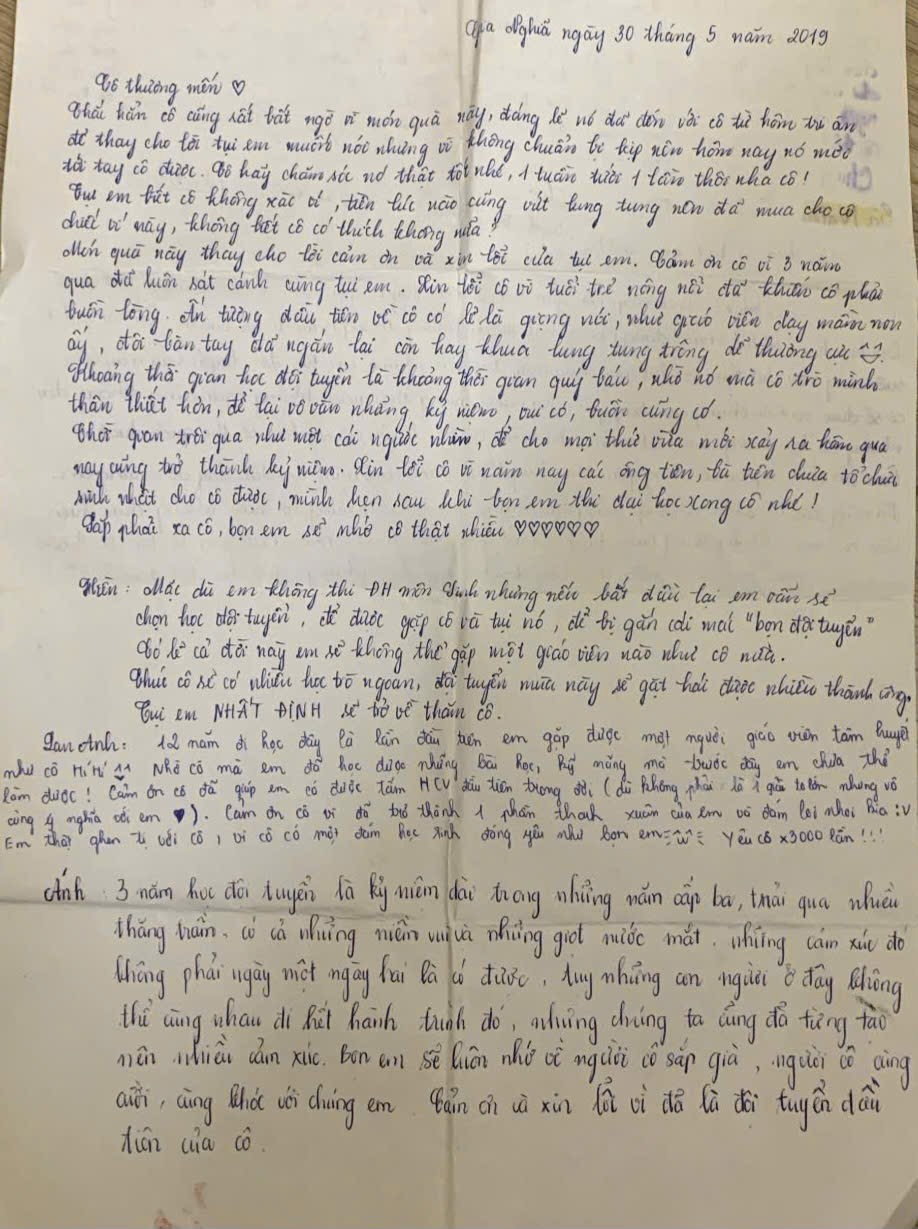 Gia Nghĩa ngày 30 tháng 5 năm 2019
Cô thương mến ♡
Chắc hẳn cô cũng rất bất ngờ vì món quà này, đáng lẽ nó đã đến với cô từ hôm tri ân
để thay cho lời tụi em muốn nói nhưng vì không chuẩn bị kịp nên hôm nay nó mới
tới tay cô được. Cô hãy chăm sóc nó thật tốt nhé, 1 tuần tưới 1 lần thôi nha cô!
Tụi em biết cô không xài ví, tiền lúc nào cũng vứt lung tung nên đã mua cho cô
chiếc ví này, không biết cô có thích không nữa!
Món quà này thay cho lời cảm ơn và xin lỗi của tụi em. Cảm ơn cô vì 3 năm
qua đã luôn sát cánh cùng tụi em. Xin lỗi cô vì tuổi trẻ nông nổi đã khiến cô phải
buồn lòng. Ấn tượng đầu tiên về cô có lẽ là giọng nói, như giáo viên dạy mầm non
ấy, đôi bàn tay đã ngắn lại còn hay khua lung tung trông dễ thương cực ^^
Khoảng thời gian học đội tuyển là khoảng thời gian quý báu, nhờ nó mà cô trò mình
thân thiết hơn, để lại vô vàn những kỷ niệm, vui có, buồn cũng có.
Thời gian trôi qua như một cái ngước nhìn, để cho mọi thứ vừa mới xảy ra hôm qua
nay cũng trở thành kỷ niệm. Xin lỗi cô vì năm nay các ông tiên, bà tiên chưa tổ chức
sinh nhật cho cô được, mình hẹn sau khi bọn em thi đại học xong cô nhé!
Sắp phải xa cô, bọn em sẽ nhớ cô thật nhiều ♡♡♡♡♡♡
Hiền: Mặc dù em không thi ĐH môn Sinh nhưng nếu bắt đầu lại em vẫn sẽ
chọn học đội tuyển, để được gặp cô và tụi nó, để bị gắn cái mác "bọn đội tuyển"
Có lẽ cả đời này em sẽ không thể gặp một giáo viên nào như cô nữa.
Chúc cô sẽ có nhiều học trò ngoan, đội tuyển mùa này sẽ gặt hái được nhiều thành công.
Tụi em NHẤT ĐỊNH sẽ trở về thăm cô.
Lan Anh: 12 năm đi học đây là lần đầu tiên em gặp được một người giáo viên tâm huyết
như cô Hí Hí ^^ Nhờ cô mà em đã học được những bài học, kỹ năng mà trước đây em chưa thể
làm được! Cảm ơn cô đã giúp em có được tấm HCV đầu tiên trong đời (dù không phải là 1 giải to lớn nhưng vô
cùng ý nghĩa với em ♥). Cảm ơn cô vì đã trở thành 1 phần thanh xuân của em và đám loi nhoi kia :v
Em thật ghen tị với cô, vì cô có một đám học sinh đáng yêu như bọn em =^w^= Yêu cô x3000 lần!!!
Ánh: 3 năm học đội tuyển là kỷ niệm dài trong những năm cấp ba, trải qua nhiều
thăng trầm, có cả những niềm vui và những giọt nước mắt. những cảm xúc đó
không phải ngày một ngày hai là có được, tuy những con người ở đây không
thể cùng nhau đi hết hành trình đó, nhưng chúng ta cũng đã từng tạo
nên nhiều cảm xúc. Bọn em sẽ luôn nhớ về người cô sắp già, người cô cùng
cười, cùng khóc với chúng em. Cảm ơn và xin lỗi vì đã là đội tuyển đầu
tiên của cô.